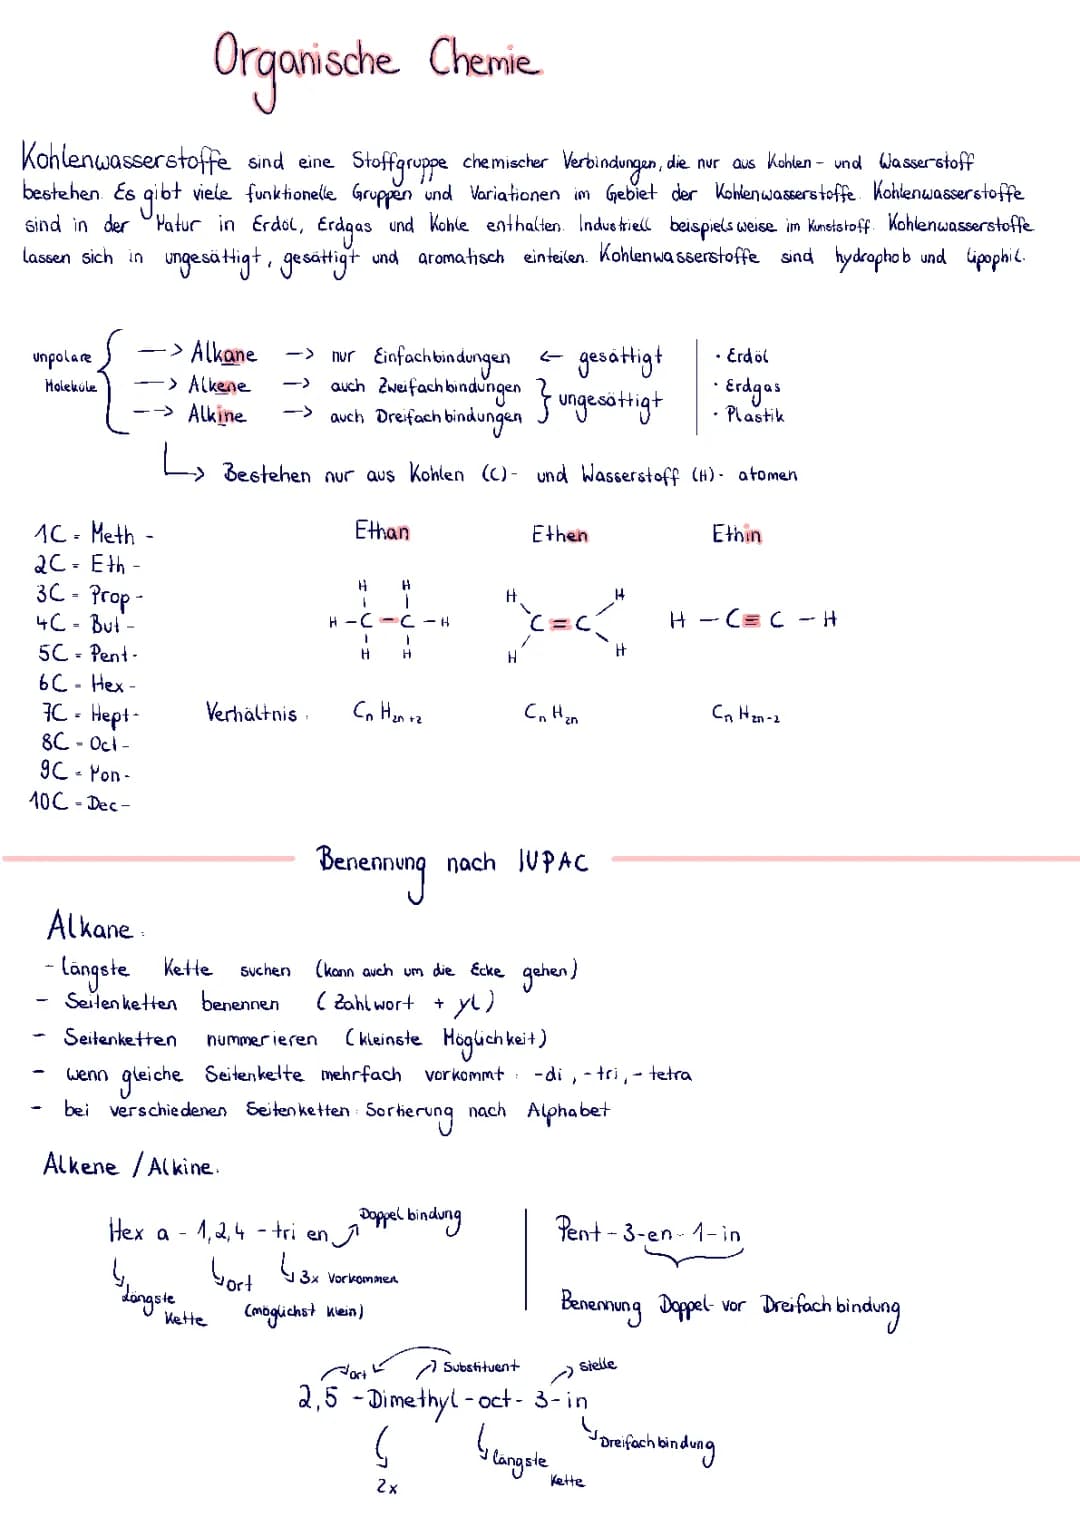 Organische Chemie
Kohlenwasserstoffe sind eine Stoffgruppe chemischer Verbindungen, die nur aus Kohlen- und Wasserstoff
bestehen. Es gibt viele funktionelle Gruppen und Variationen im Gebiet der Kohlenwasserstoffe. Kohlenwasserstoffe
sind in der Natur in Erdöl, Erdgas und Kohle enthalten. Industriell beispielsweise im Kunststoff. Kohlenwasserstoffe
lassen sich in ungesättigt, gesättigt und aromatisch einteilen. Kohlenwasserstoffe sind hydrophob und lipophil.
unpolare Moleküle
—> Alkane —> nur Einfachbindungen <— gesättigt
—> Alkene —> auch Zweifachbindungen
—> Alkine —> auch Dreifachbindungen
} ungesättigt
· Erdöl
· Erdgas
· Plastik
↳ Bestehen nur aus Kohlen (C)- und Wasserstoff (H)- atomen
1C - Meth -
2C - Eth -
3C - Prop -
4C - But -
5C - Pent -
6C - Hex -
7C - Hept -
8C - Oct -
9C - Non -
10C - Dec -
Ethan Ethen Ethin
H H
H - C - C - H
H H
H H
C = C
H H
H - C ≡ C - H
Verhältnis: CnH2n+2 CnH2n CnH2n-2
Benennung nach IUPAC
Alkane:
- längste Kette suchen (kann auch um die Ecke gehen)
- Seitenketten benennen (Zahlwort + yl)
- Seitenketten nummerieren (kleinste Möglichkeit)
- wenn gleiche Seitenkette mehrfach vorkommt: -di, -tri, -tetra
- bei verschiedenen Seitenketten: Sortierung nach Alphabet
Alkene / Alkine:
Doppelbindung
Hex a - 1,2,4 - tri en
längste Kette
ort (möglichst klein)
3x Vorkommen
Pent - 3 - en - 1 - in
Benennung Doppel- vor Dreifachbindung
ort Substituent Stelle
2,5 - Dimethyl - oct - 3 - in
2x
längste Kette
Dreifachbindung